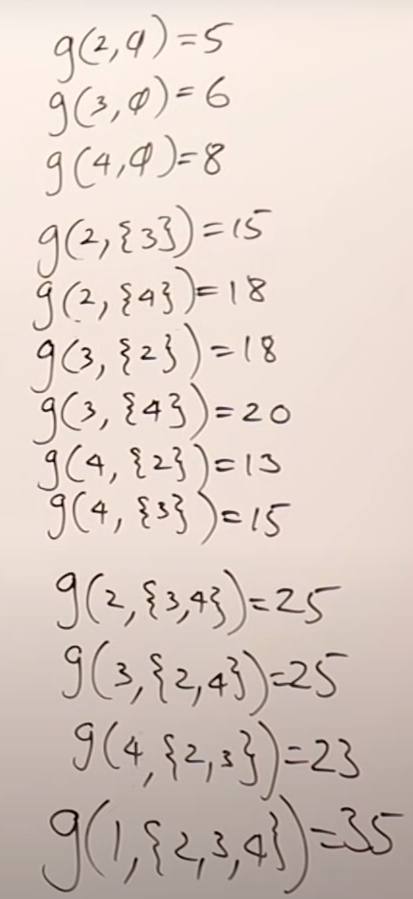 g(2,φ)=5
g(3,φ)=6
g(4,φ)=8
g(2,{3})=15
g(2,{4})=18
g(3,{2})=18
g(3,{4})=20
g(4,{2})=13
g(4,{3})=15
g(2,{3,4})=25
g(3,{2,4})=25
g(4,{2,3})=23
g(1,{2,3,4})=35